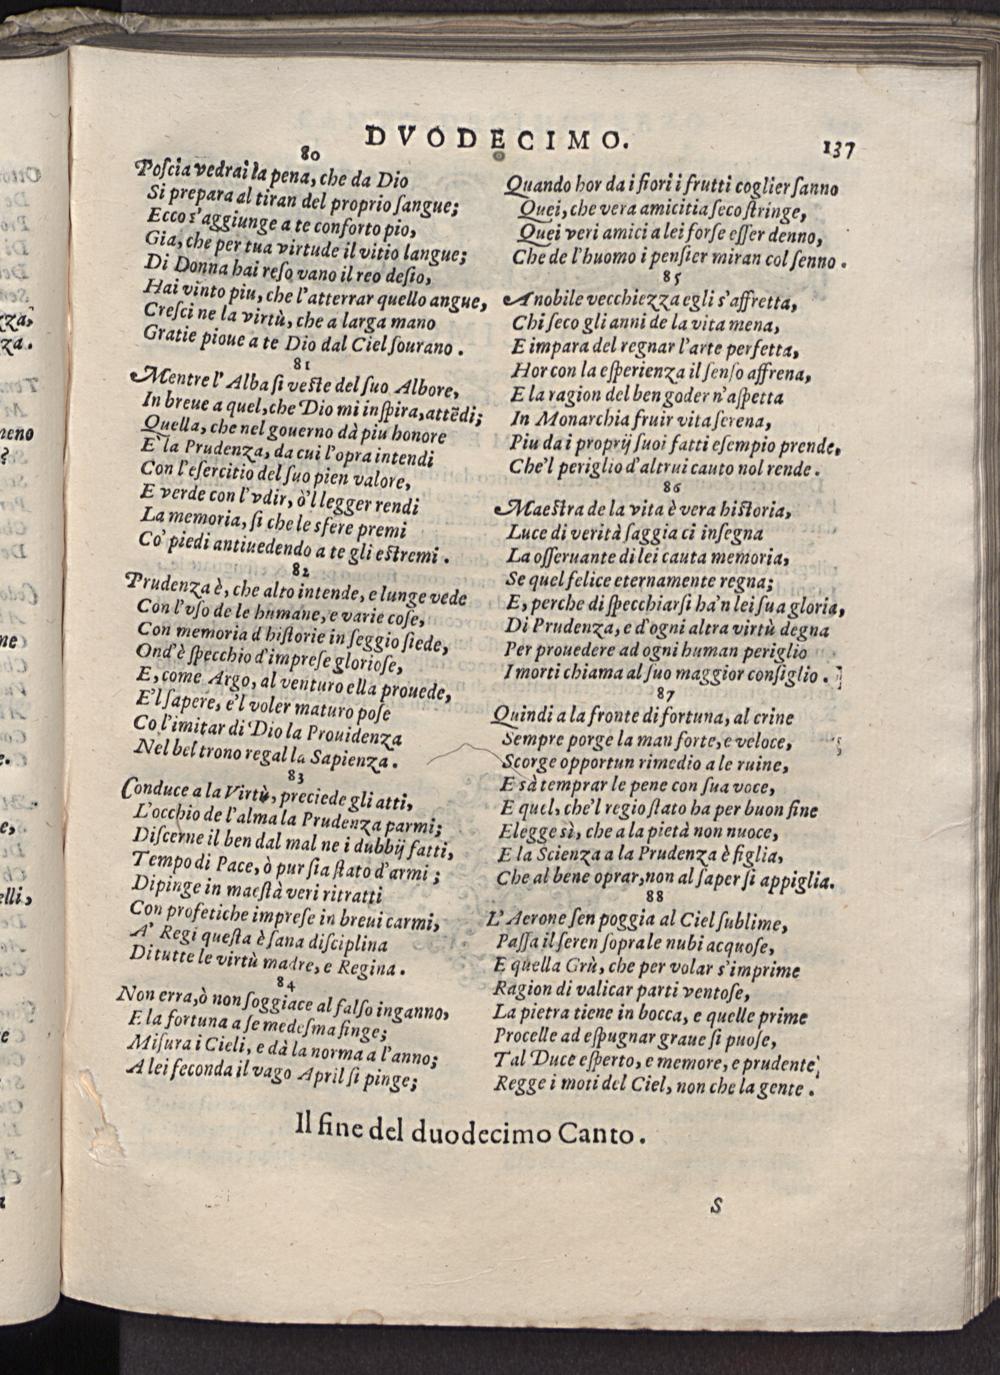 DVODECIMO.
137
80
Poſcia vedrai la pena, che da Dio
Si prepara al tiran del proprio ſangue;
Ecco s'aggiunge a te conforto pio,
Gia, che per tua virtude il vitio langue;
Di Donna hai reſo vano il reo deſio,
Hai vinto piu, che l'atterrar quello angue,
Creſci ne la virtù, che a larga mano
Gratie pioue a te Dio dal Ciel ſourano.
81
Mentre l'Alba ſi veſte del ſuo Albore,
In breue a quel, che Dio mi inſpira, attẽdi;
Quella, che nel gouerno dà piu honore
E' la Prudenza, da cui l'opra intendi
Con l'eſercitio del ſuo pien valore,
E verde con l'vdir, ò'l legger rendi
La memoria, ſi che le sfere premi
Co' piedi antiuedendo a te gli eſtremi.
82
Prudenza è, che alto intende, e lunge vede
Con l'vſo de le humane, e varie coſe,
Con memoria d'hiſtorie in ſeggio ſiede,
Ond'è ſpecchio d'impreſe glorioſe,
E, come Argo, al venturo ella prouede,
E'l ſapere, e'l voler maturo poſe
Co l'imitar di Dio la Prouidenza
Nel bel trono regal la Sapienza.
83
Conduce a la Virtù, preciede gli atti,
L'occhio de l'alma la Prudenza parmi;
Diſcerne il ben dal mal ne i dubbij fatti,
Tempo di Pace, ò pur ſia ſtato d'armi;
Dipinge in maeſtà veri ritratti
Con profetiche impreſe in breui carmi,
A' Regi queſta è ſana diſciplina
Di tutte le virtù madre, e Regina.
84
Non erra, ò non ſoggiace al falſo inganno,
E la fortuna a ſe medeſma finge;
Miſura i Cieli, e dà la norma a l'anno;
A lei feconda il vago April ſi pinge;
Quando hor da i fiori i frutti coglier ſanno
Quei, che vera amicitia ſeco ſtringe,
Quei veri amici a lei forſe eſſer denno,
Che de l'huomo i penſier miran col ſenno.
85
A nobile vecchiezza egli s'affretta,
Chi ſeco gli anni de la vita mena,
E impara del regnar l'arte perfetta,
Hor con la eſperienza il ſenſo affrena,
E la ragion del ben goder n'aſpetta
In Monarchia fruir vita ſerena,
Piu da i proprij ſuoi fatti eſempio prende,
Che'l periglio d'altrui cauto nol rende.
86
Maeſtra de la vita è vera hiſtoria,
Luce di verità ſaggia ci inſegna
La oſſeruante di lei cauta memoria,
Se quel felice eternamente regna;
E, perche di ſpecchiarſi ha'n lei ſua gloria,
Di Prudenza, e d'ogni altra virtù degna
Per prouedere ad ogni human periglio
I morti chiama al ſuo maggior conſiglio.
87
Quindi a la fronte di fortuna, al crine
Sempre porge la man forte, e veloce,
Scorge opportun rimedio a le ruine,
E sà temprar le pene con ſua voce,
E quel, che'l regio ſtato ha per buon fine
Elegge sì, che a la pietà non nuoce,
E la Scienza a la Prudenza è figlia,
Che al bene oprar, non al ſaper ſi appiglia.
88
L'Aerone ſen poggia al Ciel ſublime,
Paſſa il ſeren ſopra le nubi acquoſe,
E quella Grù, che per volar s'imprime
Ragion di valicar parti ventoſe,
La pietra tiene in bocca, e quelle prime
Procelle ad eſpugnar graue ſi puoſe,
Tal Duce eſperto, e memore, e prudente
Regge i moti del Ciel, non che la gente.
Il fine del duodecimo Canto.
S